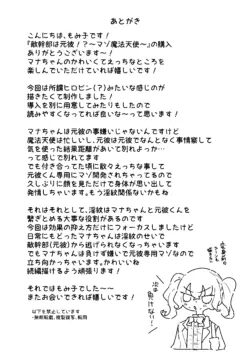 あとがき
こんにちは、もみ子です！
『敵幹部は元彼！？～マゾ魔法天使～』の購入
ありがとうございます～！
マナちゃんのかわいくてえっちなところを
楽しんでいただけていれば嬉しいです！
今回は所謂ヒロピン（？）みたいな感じのが
描きたくて制作しました！
導入を別に用意してみたりもしたので
読みやすくなってれば良いな～って思います！
マナちゃんは元彼の事嫌いじゃないんですけど
魔法天使は忙しいし、元彼は元彼でなんとなく事情察して
気を使った結果距離があいて別れよっか…
って感じで別れてます
でも付き合ってた頃に散々えっちな事して
元彼くん専用にマゾ開発されちゃってるので
久しぶりに顔を見ただけで身体が思い出して
発情しちゃいます。もう淫紋関係ないですね！
それはそれとして、淫紋はマナちゃんと元彼くんを
繋ぎとめる大事な役割があるのです
今回は効果の抑え方だけにフォーカスしましたけど
日常にもどったマナちゃんは淫紋のせいで
敵幹部（元彼）から逃げられなくなっちゃいます
でもマナちゃんは負けず嫌いで元彼専用マゾなので
立ち向かっちゃいますね。かわいいね
続編描けるよう頑張ります！
それではもみ子でした～！
またお会いできれば嬉しいです！
以下を禁止しています
・無断転載、複製翻案、転用